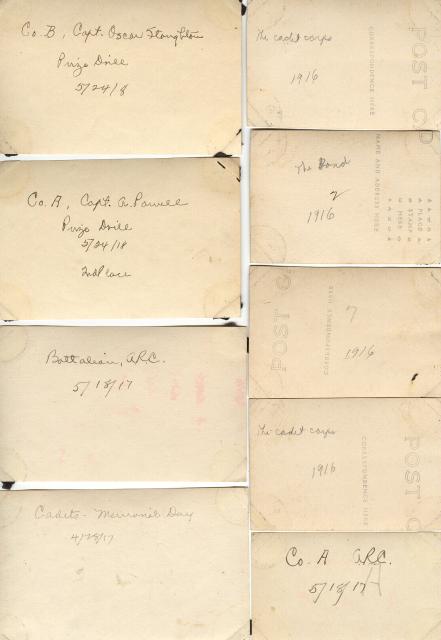 Co. B, Capt. Oscar Stoughton
Prize Drill
5/24/18
Co. A, Capt. A. Powell
Prize Drill
5/24/18
2nd Place
Battalion, A.R.C.
5/18/17
Cadets - Memorial Day
4/28/17
The cadet corps
1916
CORRESPONDENCE HERE
POST CA
The Band
2
1916
NAME AND ADDRESS HERE
PLACE
STAMP
HERE
7
1916
CORRESPONDENCE HERE
POST CA
The cadet corps
1916
CORRESPONDENCE HERE
POST C
Co. A A.R.C.
5/18/17